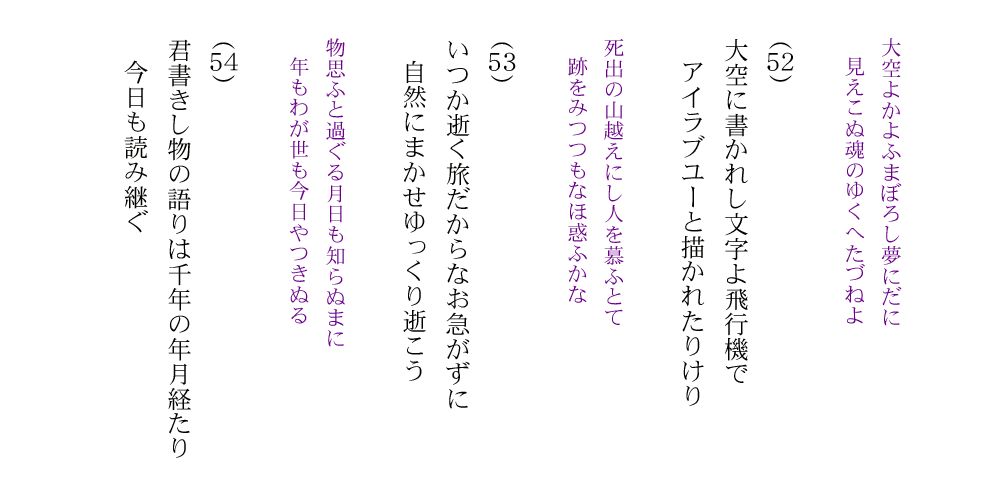 大空よかよふまぼろし夢にだに
見えこぬ魂のゆくへたづねよ
(52)
大空に書かれし文字よ飛行機で
アイラブユーと描かれたりけり
死出の山越えにし人を慕ふとて
跡をみつつもなほ惑ふかな
(53)
いつか逝く旅だからなお急がずに
自然にまかせゆっくり逝こう
物思ふと過ぐる月日も知らぬまに
年もわが世も今日やつきぬる
(54)
君書きし物の語りは千年の年月経たり
今日も読み継ぐ